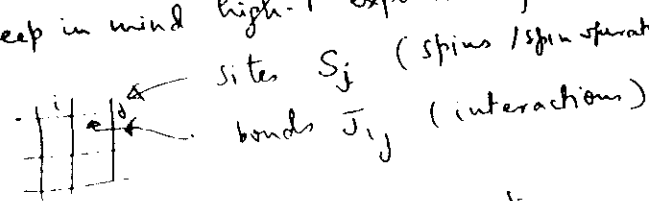 eep in mind high-T exp
sites S_j (spins / spin operat
i j
bonds J_ij (interactions)